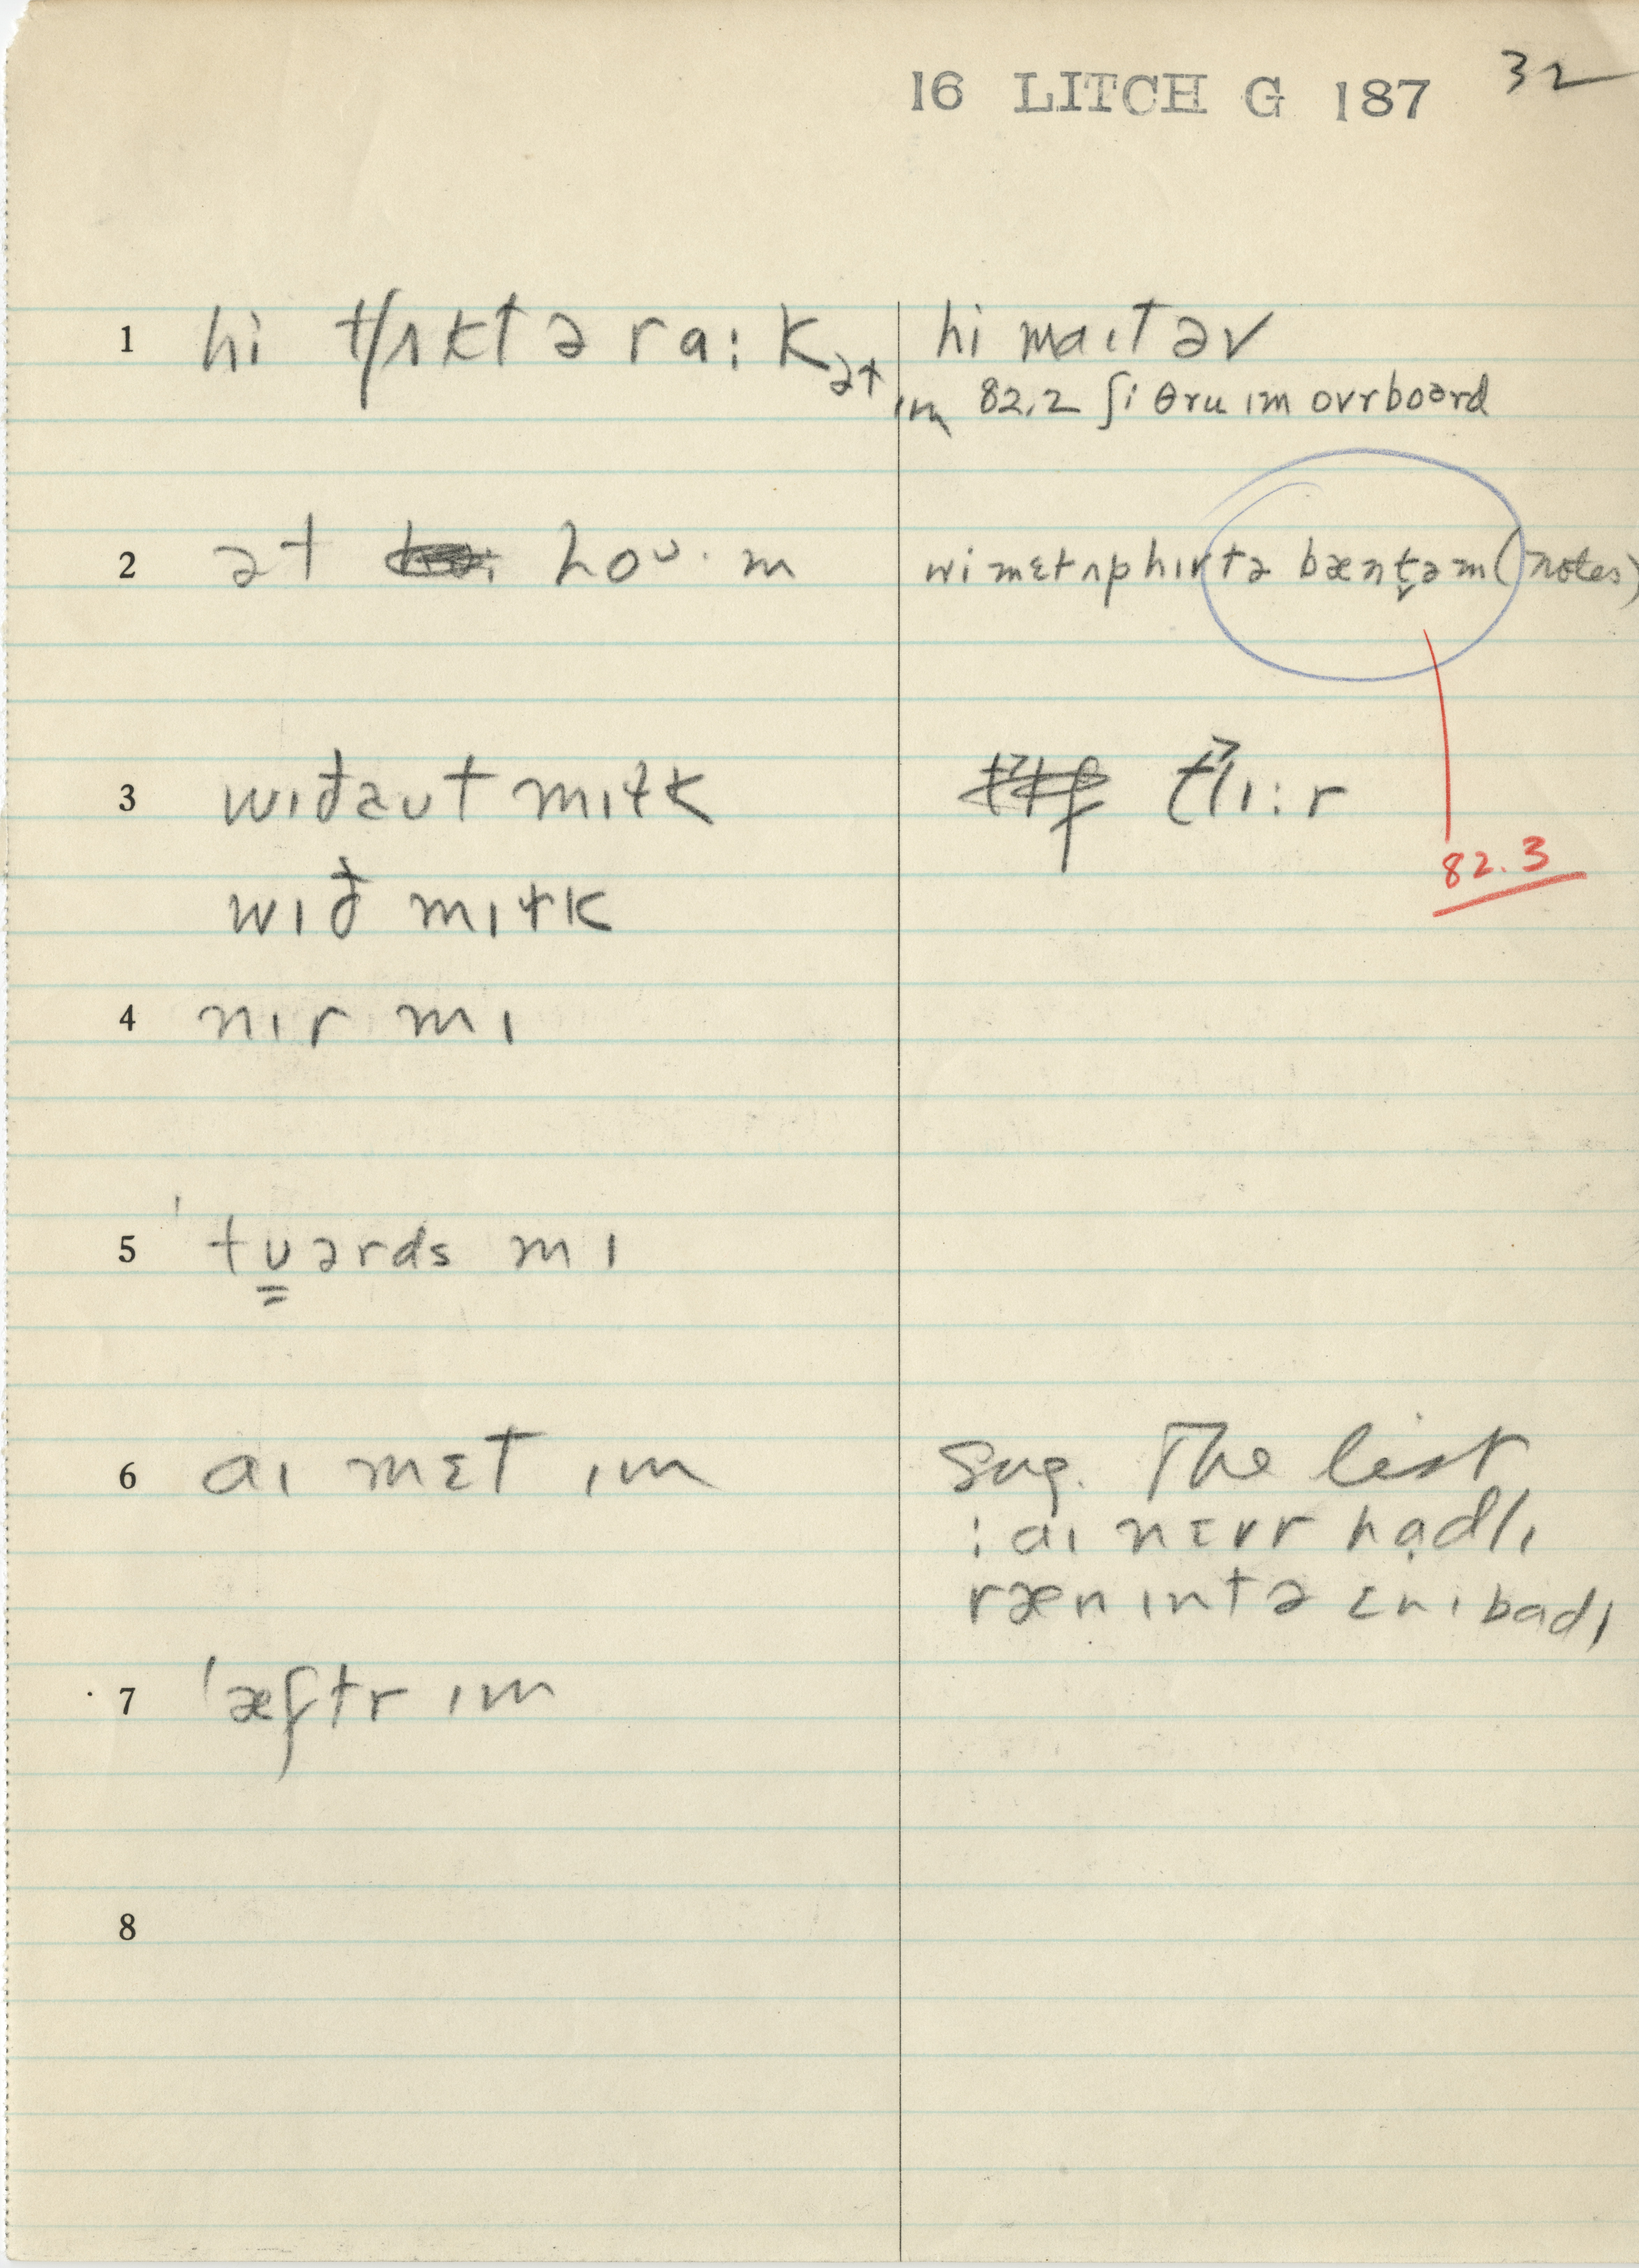 16 LITCH G 187 32
1 hi tʃʌkt ə ra:k ət ɪm
hi maɪt əv
82.2 ʃi θru ɪm ovrboərd
2 ət hoᴜ·m
wi mɛt ʌp hɪr tə bæntə̬m (notes)
3 wɪðəʊt mɪɫk
tʃɪ:r
82.3
wɪð mɪɫk
4 nɪr mɪ
5 'tʊərds mɪ
6 aɪ mɛt ɪm
Sug. The list
: aɪ nɛvr hadlɪ
ræn ɪntə ɛnɪbadɪ
7 'æftr ɪm
8